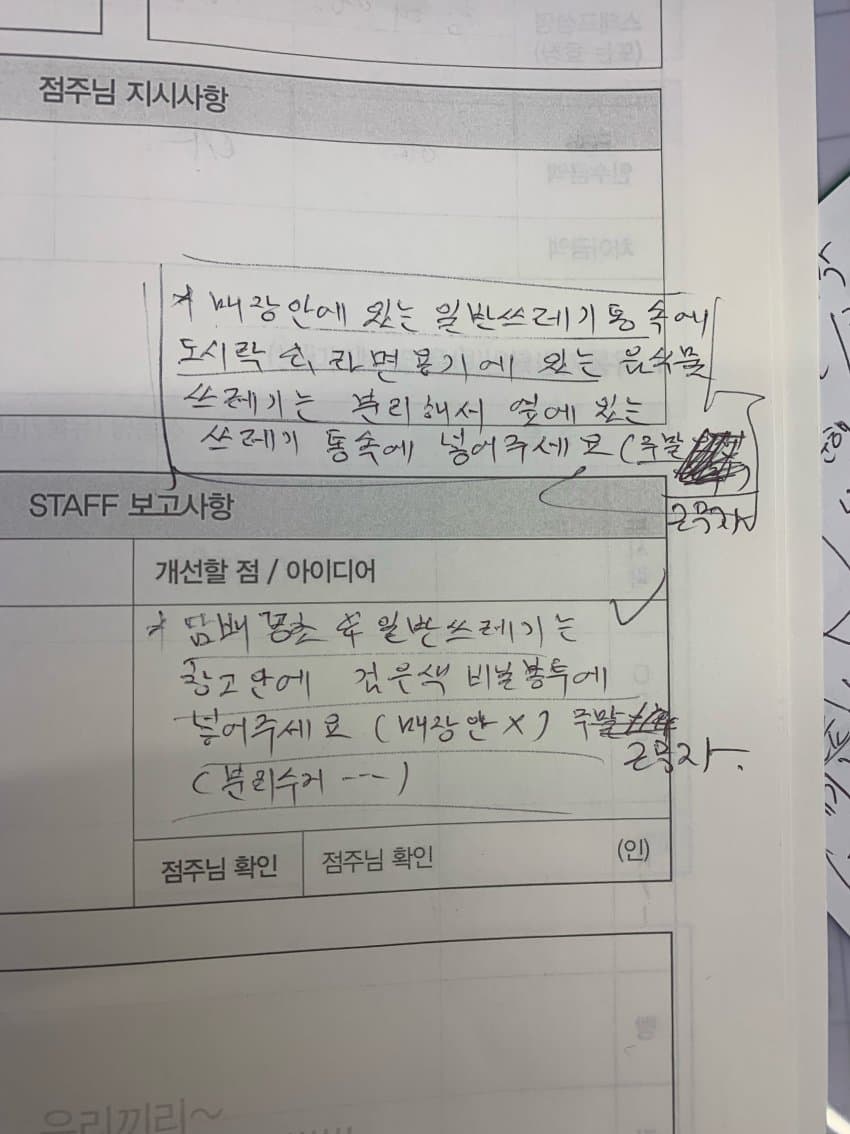 점주님 지시사항
* 매장안에 있는 일반쓰레기통 속에
도시락 라면용기에 있는 음식물
쓰레기는 분리해서 옆에 있는
쓰레기 통속에 넣어주세요 (주말
근무자
STAFF 보고사항
개선할 점 / 아이디어
* 담배 꽁초 일반쓰레기는
창고안에 검은색 비닐봉투에
넣어주세요 (매장안 X) 주말
근무자.
(분리수거 ---)
점주님 확인 점주님 확인 (인)
우리끼리~